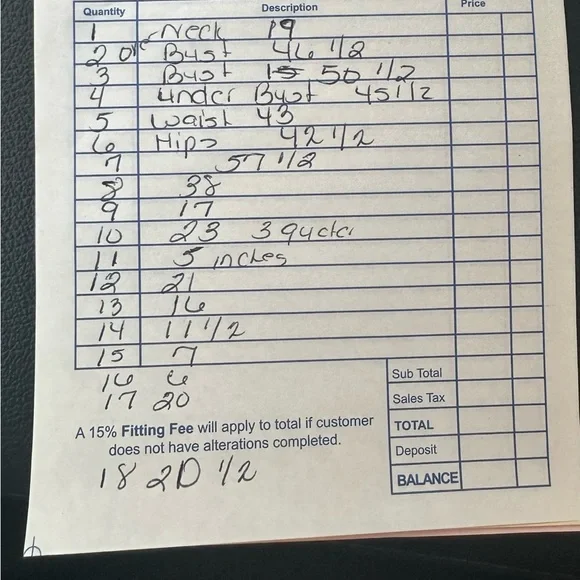 Quantity Description Price
1 Neck 19
2 over Bust 46 1/2
3 Bust 15 50 1/2
4 under Bust 45 1/2
5 waist 43
6 Hips 42 1/2
7 57 1/2
8 38
9 17
10 23 3 quder
11 5 inches
12 21
13 16
14 11 1/2
15 7
16 6
17 20
A 15% Fitting Fee will apply to total if customer
does not have alterations completed.
18 20 1/2
Sub Total
Sales Tax
TOTAL
Deposit
BALANCE